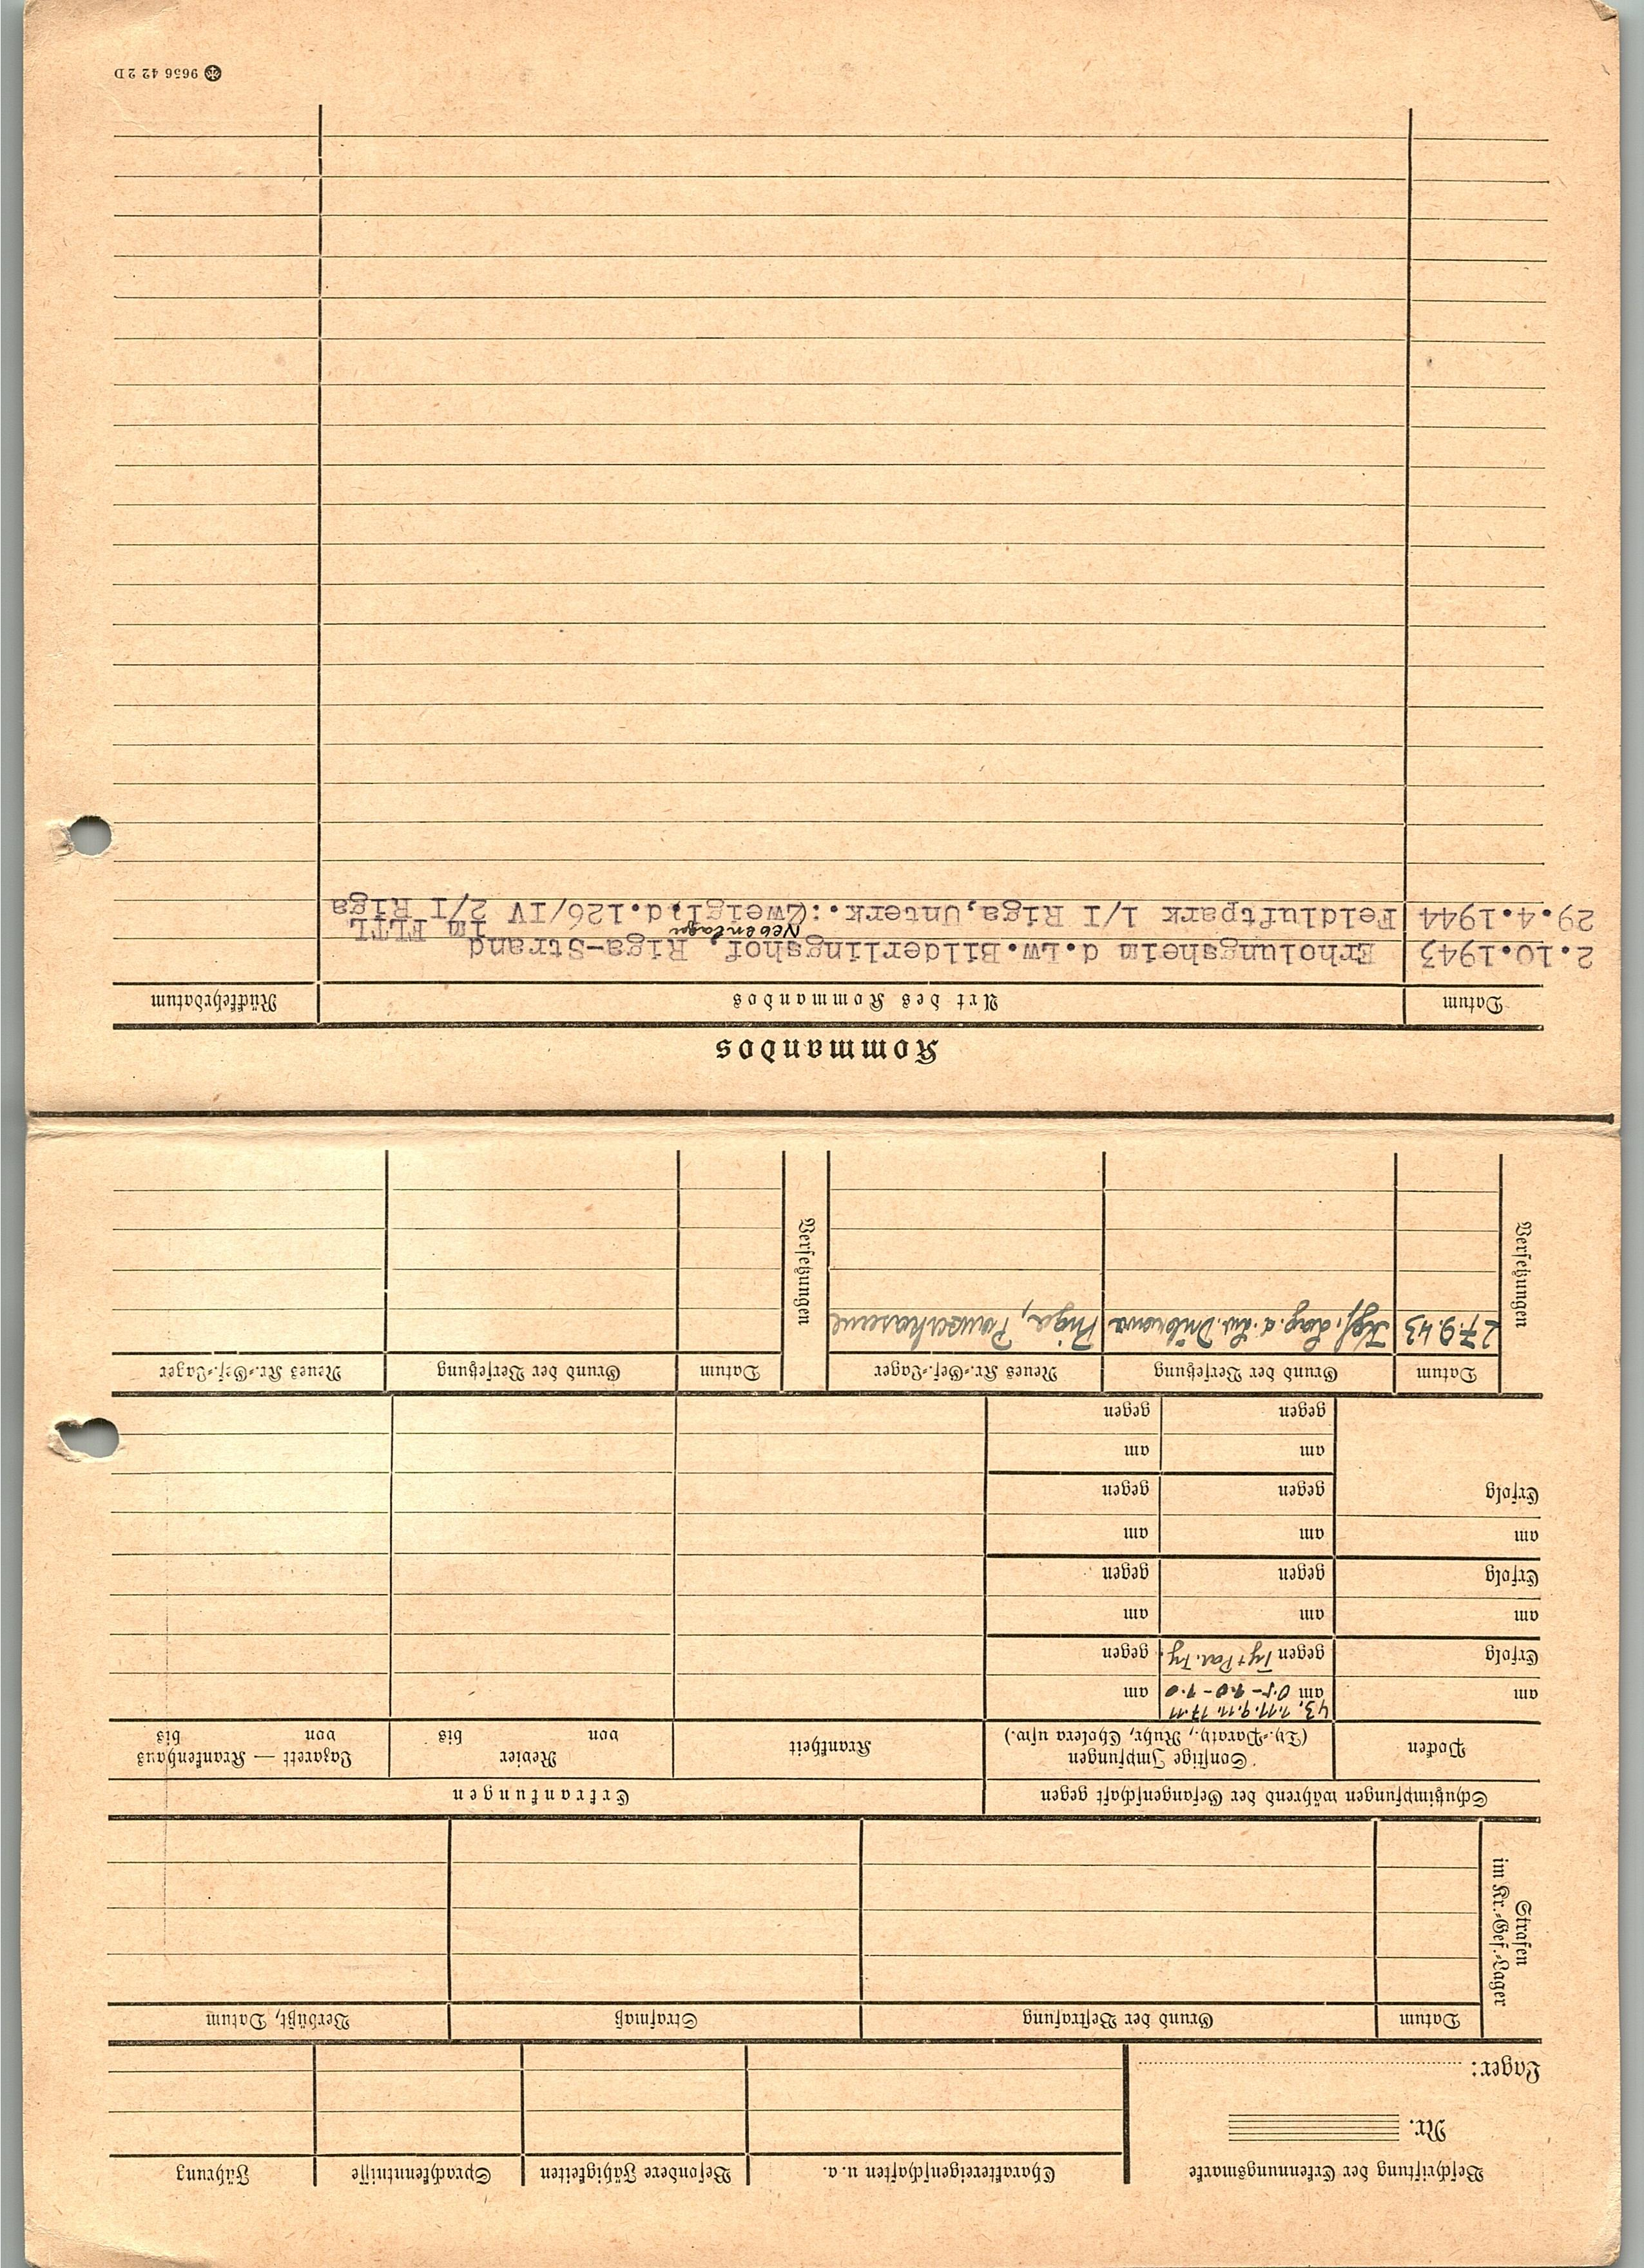 Beschriftung der Erkennungsmarke
Nr.
Lager:
Charaktereigenschaften u. a.
Besondere Fähigkeiten
Sprachkenntnisse
Führung
Strafen
im Kr.-Gef.-Lager
Datum
Grund der Bestrafung
Strafmaß
Verbüßt, Datum
Schutzimpfungen während der Gefangenschaft gegen
Erkrankungen
Pocken
Sonstige Impfungen
(Ty.-Paraty., Ruhr, Cholera usw.)
Krankheit
Revier
von bis
Lazarett — Krankenhaus
von bis
43, 1.11. 9.11. 17.11
am
am 0.5- 1.0- 1.0
am
Erfolg
gegen Ty + Par. Ty.
gegen
am
am
am
Erfolg
gegen
gegen
am
am
am
Erfolg
gegen
gegen
am
am
gegen
gegen
Versetzungen
Datum
Grund der Versetzung
Neues Kr.-Gef.-Lager
27.9.43
Kgf. Lag. d. Lw.
Riga, Panzerkaserne
Versetzungen
Datum
Grund der Versetzung
Neues Kr.-Gef.-Lager
Kommandos
Datum
Art des Kommandos
Rückkehrdatum
2.10.1943 Erholungsheim d.Lw.Bilderlingshof, Riga-Strand
Nebenlager im FLTL
29.4.1944 Feldluftpark 1/I Riga,Unterk.:(Zweigl.d.126/IV 2/I Riga
9656 42 2 D